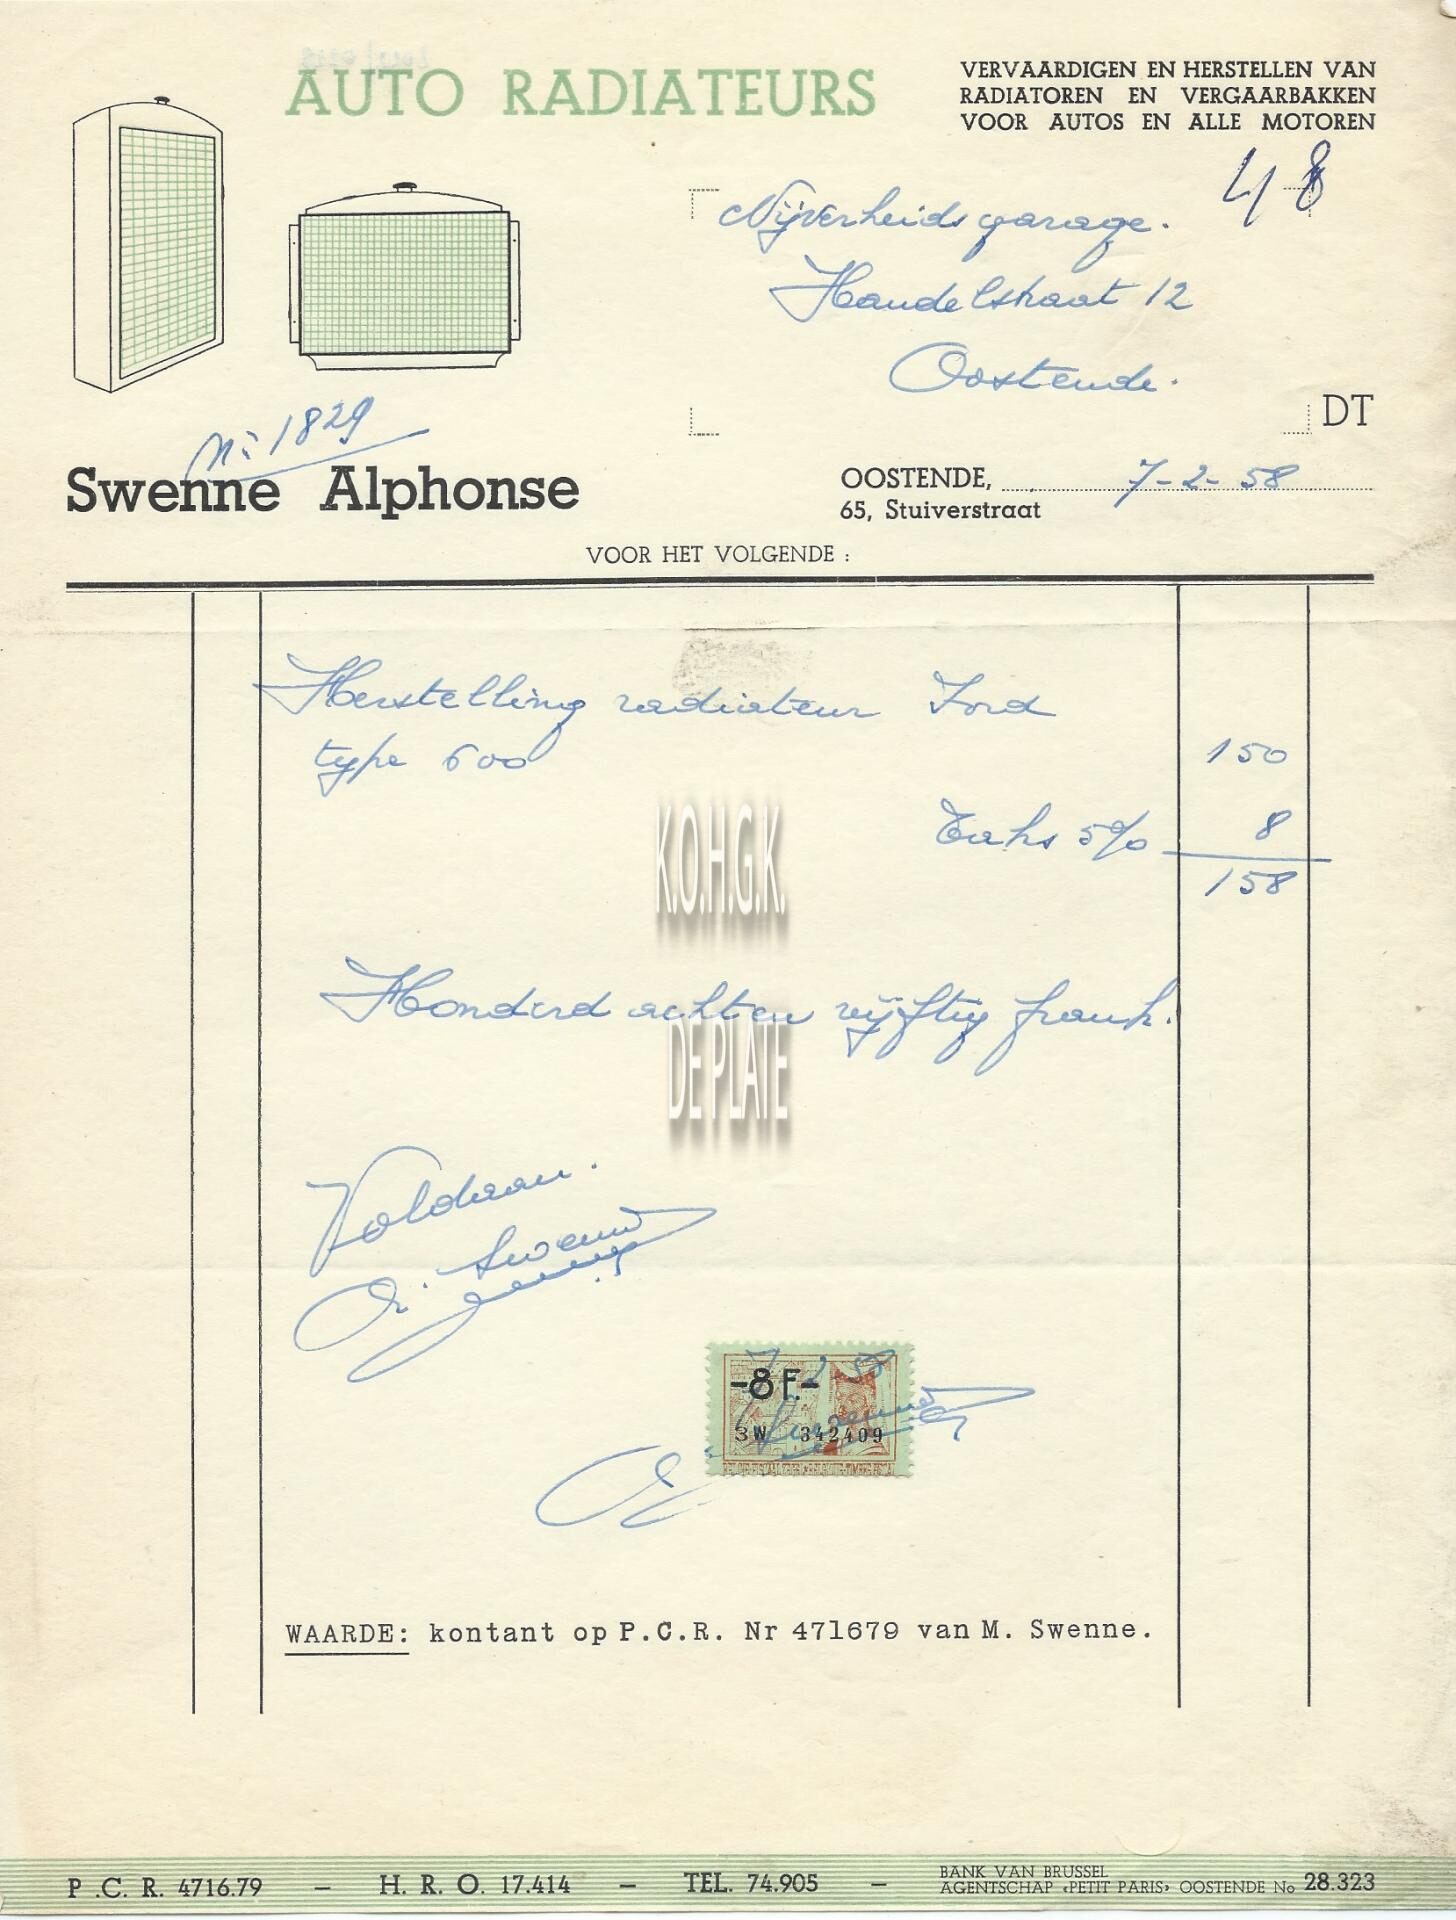 AUTO RADIATEURS
VERVAARDIGEN EN HERSTELLEN VAN
RADIATOREN EN VERGAARBAKKEN
VOOR AUTOS EN ALLE MOTOREN
48
Nijverheids garage.
Handelstraat 12
Oostende.
DT
Nr 1829
Swenne Alphonse
OOSTENDE, 7-2-58
65, Stuiverstraat
VOOR HET VOLGENDE :
Herstelling radiateur Ford
type 600 150
Taks 5% 8
158
K.O.H.G.K.
Honderd achten vijftig frank.
DE PLATE
Voldaan.
A. Swenne
7-2-58
-8 F.-
3W 342409
A. Swenne
WAARDE: kontant op P.C.R. Nr 471679 van M. Swenne.
P .C. R. 4716.79 – H. R. O. 17.414 – TEL. 74.905 – BANK VAN BRUSSEL
AGENTSCHAP «PETIT PARIS» OOSTENDE No 28.323